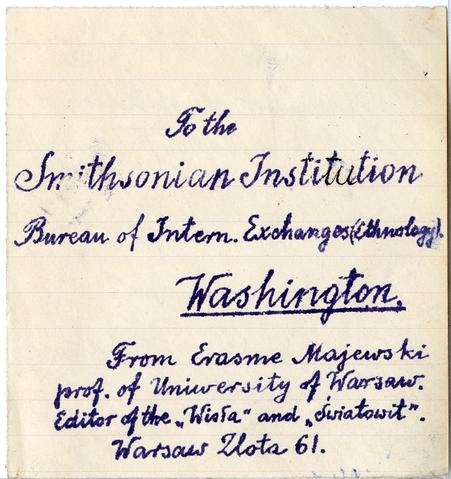 To the
Smithsonian Institution
Bureau of Intern. Exchanges (Ethnology).
Washington.
From Erasme Majewski
prof. of University of Warsaw.
Editor of the „Wisła“ and „Światowit“.
Warsaw Złota 61.